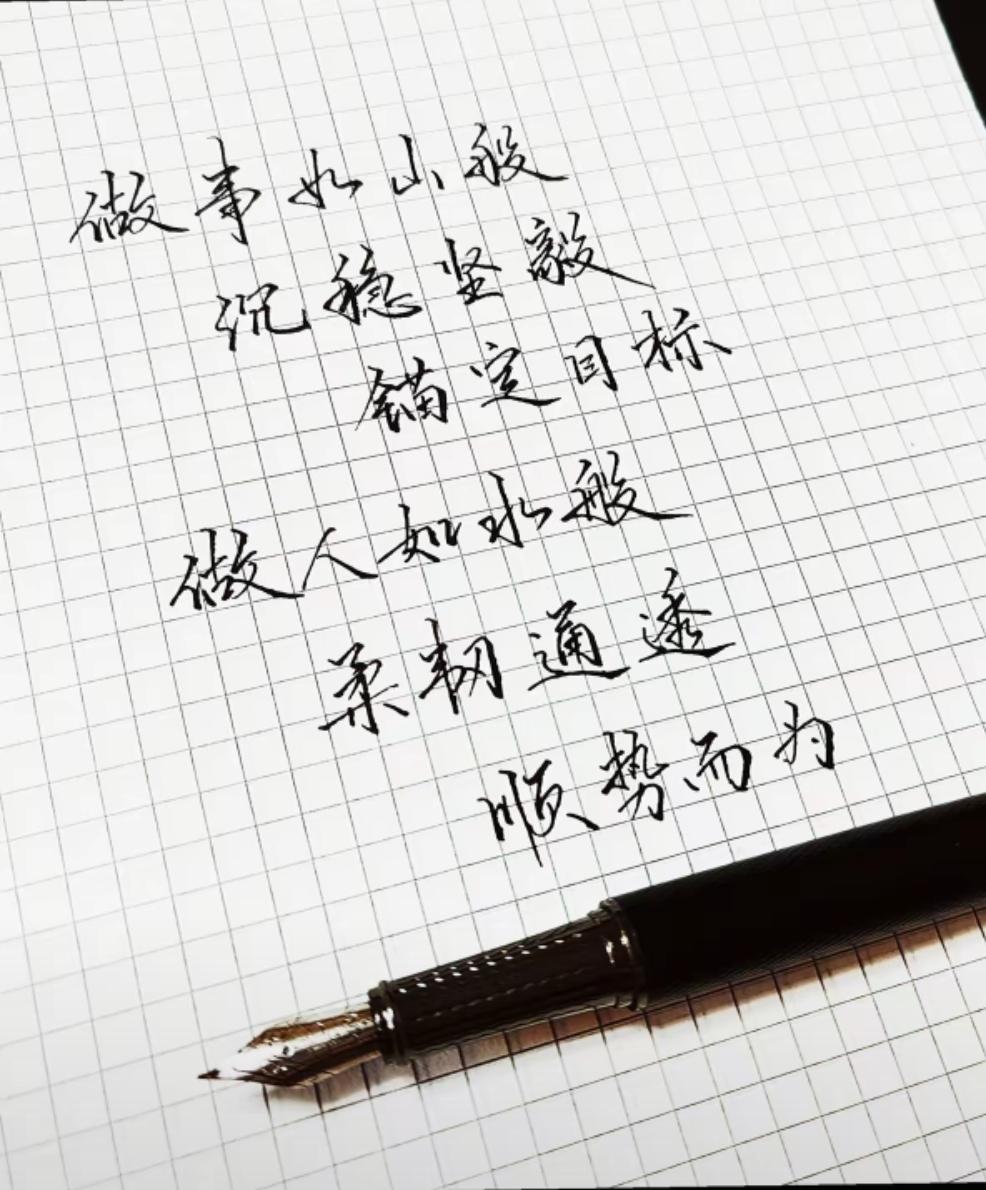 做事如山般
沉稳坚毅
锚定目标
做人如水般
柔韧通透
顺势而为